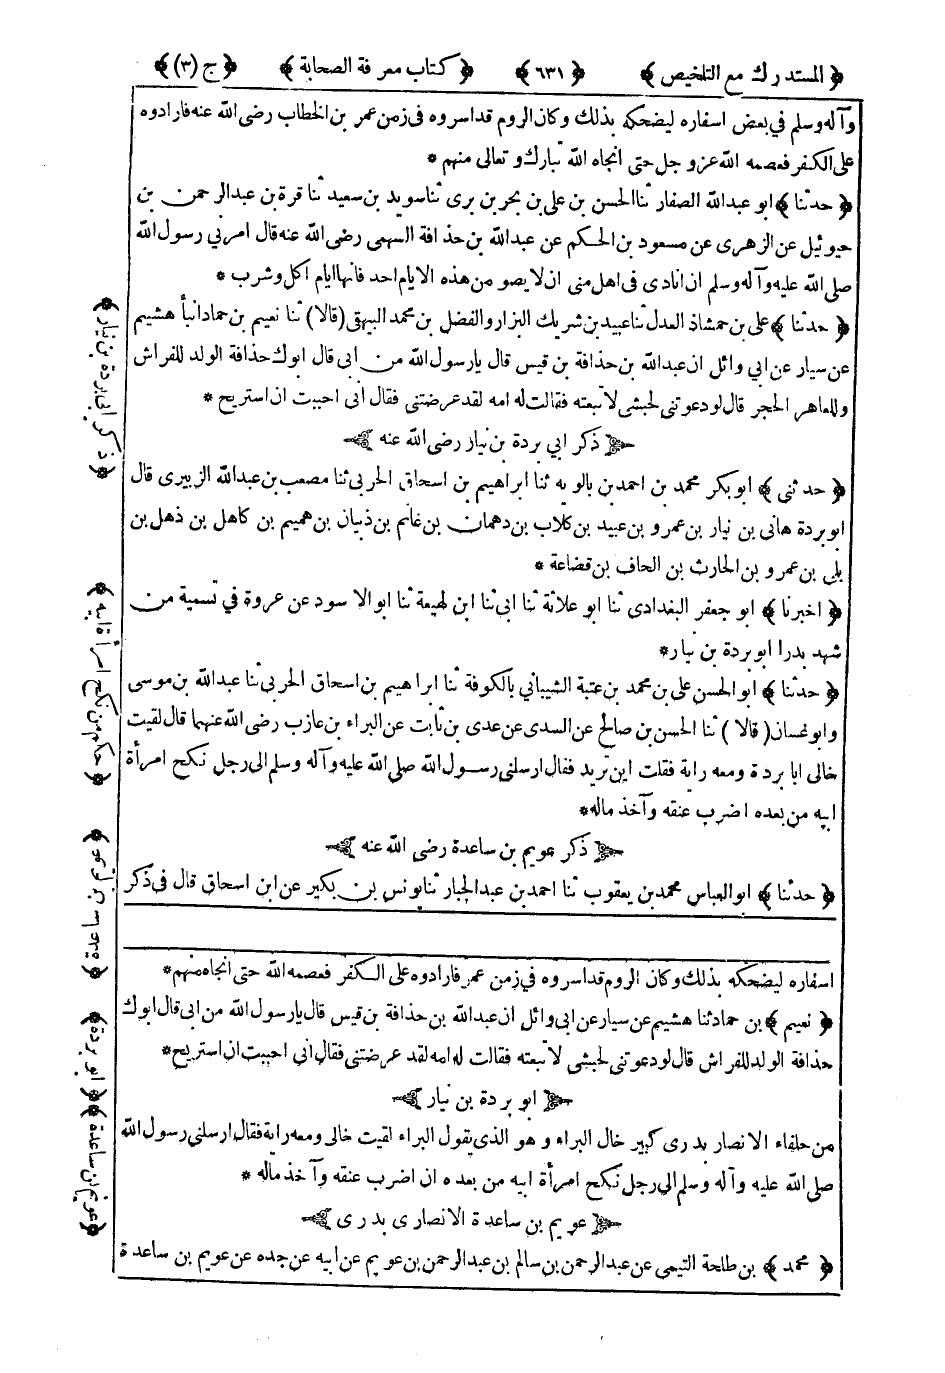 ﴿ المستدرك مع التلخيص ﴾ ﴿ ٦٣١ ﴾ ﴿ كتاب معرفة الصحابة ﴾ ﴿ ج (٣) ﴾
وآله وسلم في بعض اسفاره ليضحكه بذلك وكان الروم قد اسروه في زمن عمر بن الخطاب رضى الله عنه فارادوه
على الكفر فعصمه الله عز وجل حتى انجاه الله تبارك وتعالى منهم *
﴿ حدثنا ﴾ ابو عبدالله الصفار ثنا الحسن بن على بن بحر بن برى ثنا سويد بن سعيد ثنا قرة بن عبد الرحمن بن
حيوئيل عن الزهرى عن مسعود بن الحكم عن عبدالله بن حذافة السهمى رضى الله عنه قال امرني رسول الله
صلى الله عليه وآله وسلم ان انادى فى اهل منى ان لا يصومن هذه الايام احد فانها ايام اكل وشرب *
﴿ حدثنا ﴾ على بن حمشاذ العدل ثنا عبيد بن شريك البزار والفضل بن محمد البيهقى (قالا) ثنا نعيم بن حماد انبأ هشيم
عن سيار عن ابي وائل ان عبدالله بن حذافة بن قيس قال يارسول الله من ابى قال ابوك حذافة الولد للفراش
وللعاهر الحجر قال لو دعوتنى لحبشى لاتبعته فقالت له امه لقد عرضتنى فقال انى احببت ان استريح *
ذكر ابي بردة بن نيار رضى الله عنه
﴿ حدثنى ﴾ ابو بكر محمد بن احمد بن بالويه ثنا ابراهيم بن اسحاق الحربى ثنا مصعب بن عبدالله الزبيرى قال
ابو بردة هانى بن نيار بن عمرو بن عبيد بن كلاب بن دهمان بن غانم بن ذبيان بن هميم بن كاهل بن ذهل بن
بلى بن عمرو بن الحارث بن الحاف بن قضاعة *
﴿ اخبرنا ﴾ ابو جعفر البغدادى ثنا ابو علاثة ثنا ابى ثنا ابن لهيعة ثنا ابو الاسود عن عروة في تسمية من
شهد بدرا ابو بردة بن نيار*
﴿ حدثنا ﴾ ابو الحسن على بن محمد بن عتبة الشيباني بالكوفة ثنا ابراهيم بن اسحاق الحربى ثنا عبدالله بن موسى
وابو غسان (قالا) ثنا الحسن بن صالح عن السدى عن عدى بن ثابت عن البراء بن عازب رضى الله عنهما قال لقيت
خالى ابا بردة ومعه راية فقلت اين تريد فقال ارسلنى رسول الله صلى الله عليه وآله وسلم الى رجل نكح امرأة
ابيه من بعده اضرب عنقه وآخذ ماله*
ذكر عويم بن ساعدة رضى الله عنه
﴿ حدثنا ﴾ ابو العباس محمد بن يعقوب ثنا احمد بن عبد الجبار ثنا يونس بن بكير عن ابن اسحاق قال فى ذكر
اسفاره ليضحكه بذلك وكان الروم قد اسروه في زمن عمر فارادوه على الكفر فعصمه الله حتى انجاه منهم*
﴿ نعيم ﴾ بن حماد ثنا هشيم عن سيار عن ابى وائل ان عبدالله بن حذافة بن قيس قال يارسول الله من ابى قال ابوك
حذافة الولد للفراش قال لو دعوتنى لحبشى لاتبعته فقالت له امه لقد عرضتنى فقال انى احببت ان استريح*
ابو بردة بن نيار
من حلفاء الانصار بدرى كبير خال البراء وهو الذى يقول البراء لقيت خالى ومعه راية فقال ارسلنى رسول الله
صلى الله عليه وآله وسلم الى رجل نكح امرأة ابيه من بعده ان اضرب عنقه وآخذ ماله *
عويم بن ساعدة الانصارى بدرى
﴿ محمد ﴾ بن طلحة التيمى عن عبد الرحمن بن سالم بن عبد الرحمن بن عويم عن ابيه عن جده عن عويم بن ساعدة
﴿ ذكر ابى بردة بن نيار ﴾
﴿ حكم من نكح امرأة ابيه ﴾
﴿ عويم بن ساعدة ﴾
﴿ ابو بردة ﴾
﴿ عويم بن ساعدة ﴾